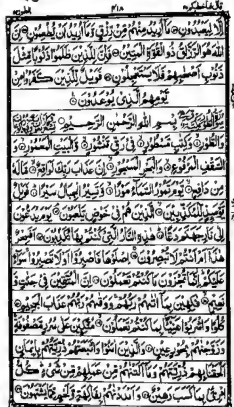 قال فما خطبكم ۴۱۸ الطور
اِلَّا لِیَعْبُدُوْنِ مَاۤ اُرِیْدُ مِنْهُمْ مِّنْ رِّزْقٍ وَّمَاۤ اُرِیْدُ اَنْ یُّطْعِمُوْنِ اِنَّ
اللّٰهَ هُوَ الرَّزَّاقُ ذُو الْقُوَّةِ الْمَتِیْنُ فَاِنَّ لِلَّذِیْنَ ظَلَمُوْا ذَنُوْبًا مِّثْلَ
ذَنُوْبِ اَصْحٰبِهِمْ فَلَا یَسْتَعْجِلُوْنِ فَوَیْلٌ لِّلَّذِیْنَ كَفَرُوْا مِنْ
یَّوْمِهِمُ الَّذِیْ یُوْعَدُوْنَ
بِسْمِ اللّٰهِ الرَّحْمٰنِ الرَّحِیْمِ
وَالطُّوْرِ وَكِتٰبٍ مَّسْطُوْرٍ فِیْ رَقٍّ مَّنْشُوْرٍ وَّالْبَیْتِ الْمَعْمُوْرِ وَ
السَّقْفِ الْمَرْفُوْعِ وَالْبَحْرِ الْمَسْجُوْرِ اِنَّ عَذَابَ رَبِّكَ لَوَاقِعٌ مَّا لَهٗ
مِنْ دَافِعٍ یَّوْمَ تَمُوْرُ السَّمَآءُ مَوْرًا وَّتَسِیْرُ الْجِبَالُ سَیْرًا فَوَیْلٌ
یَّوْمَىِٕذٍ لِّلْمُكَذِّبِیْنَ الَّذِیْنَ هُمْ فِیْ خَوْضٍ یَّلْعَبُوْنَ یَوْمَ یُدَعُّوْنَ
اِلٰی نَارِ جَهَنَّمَ دَعًّا هٰذِهِ النَّارُ الَّتِیْ كُنْتُمْ بِهَا تُكَذِّبُوْنَ اَفَسِحْرٌ
هٰذَاۤ اَمْ اَنْتُمْ لَا تُبْصِرُوْنَ اِصْلَوْهَا فَاصْبِرُوْۤا اَوْ لَا تَصْبِرُوْا سَوَآءٌ
عَلَیْكُمْ اِنَّمَا تُجْزَوْنَ مَا كُنْتُمْ تَعْمَلُوْنَ اِنَّ الْمُتَّقِیْنَ فِیْ جَنّٰتٍ وَّ
نَعِیْمٍ فٰكِهِیْنَ بِمَاۤ اٰتٰىهُمْ رَبُّهُمْ وَوَقٰىهُمْ رَبُّهُمْ عَذَابَ الْجَحِیْمِ
كُلُوْا وَاشْرَبُوْا هَنِیْٓـًٔا بِمَا كُنْتُمْ تَعْمَلُوْنَ مُتَّكِـِٕیْنَ عَلٰی سُرُرٍ مَّصْفُوْفَةٍ
وَزَوَّجْنٰهُمْ بِحُوْرٍ عِیْنٍ وَالَّذِیْنَ اٰمَنُوْا وَاتَّبَعَتْهُمْ ذُرِّیَّتُهُمْ بِاِیْمَانٍ
اَلْحَقْنَا بِهِمْ ذُرِّیَّتَهُمْ وَمَاۤ اَلَتْنٰهُمْ مِّنْ عَمَلِهِمْ مِّنْ شَیْءٍ كُلُّ
امْرِئٍۭ بِمَا كَسَبَ رَهِیْنٌ وَاَمْدَدْنٰهُمْ بِفَاكِهَةٍ وَّلَحْمٍ مِّمَّا یَشْتَهُوْنَ